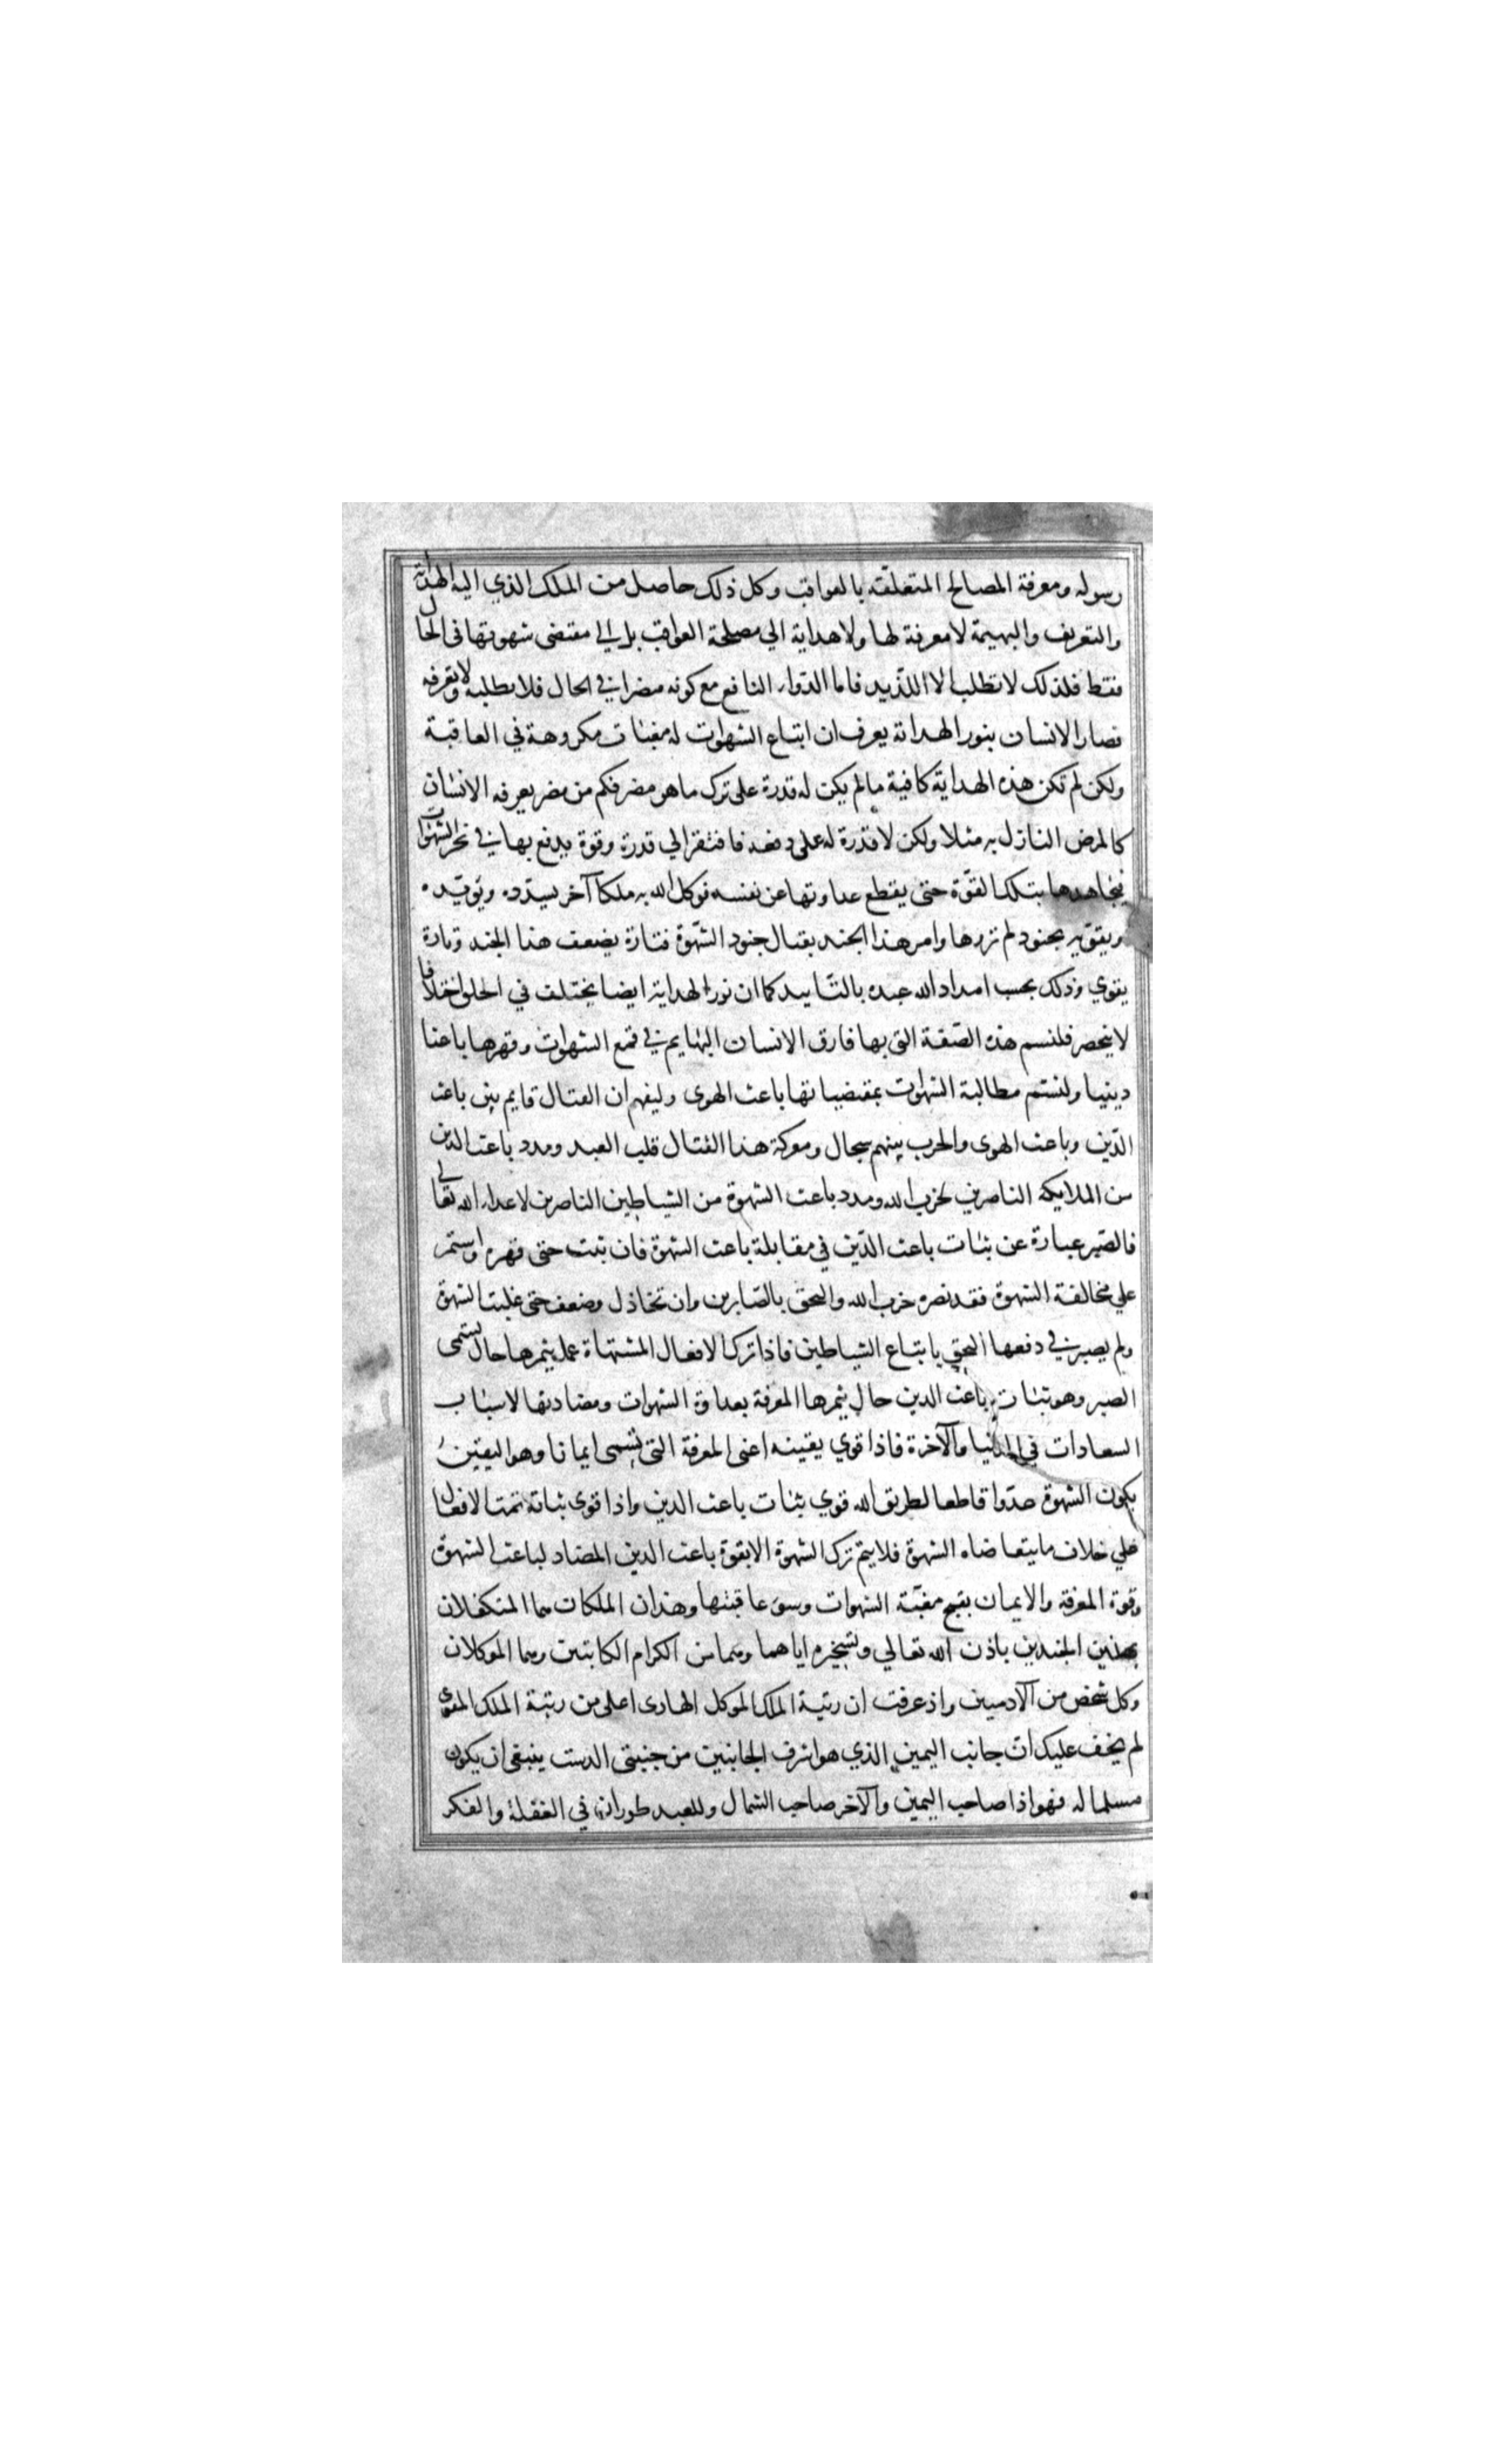 رسوله ومعرفة المصالح المتعلقة بالعواقب وكل ذلك حاصل من الملك الذي اليه الهداية
والتعريف والبهيمة لا معرفة لها ولا هداية الي مصلحة العواقب بل الي مقتضى شهوتها في الحال
فقط فلذلك لا تطلب الا اللذيد فاما الدواء النافع مع كونه مضرا في الحال فلا تطلبه ولا تعرفه
فصار الانسان بنور الهداية يعرف ان ابتاع الشهوات له مغبات مكروهة في العاقبة
ولكن لم تكن هذه الهداية كافية ما لم يكن له قدرة على ترك ما هو مضر فكم من مضر يعرفه الانسان
كالمرض النازل به مثلا ولكن لا قدرة له على دفعه فافتقر الي قدرة وقوة يدفع بها في نحر الشهوات
فيجاهدها بتلك القوة حتى يقطع عداوتها عن نفسه فوكل الله به ملكا آخر يسدده ويؤيده
ويقويه بجنود لم تروها وامر هذا الجند بقتال جنود الشهوة فتارة يضعف هذا الجند وتارة
يقوي وذلك بحسب امداد الله عبده بالتاييد كما ان نور الهداية ايضا يختلف في الخلق اختلافا
لا ينحصر فلنسم هذه الصفة التي بها فارق الانسان البهايم في قمع الشهوات وقهرها باعثا
دينيا ولنسم مطالبة الشهوات بمقتضياتها باعث الهوى وليفهم ان القتال قايم بين باعث
الدين وباعث الهوى والحرب بينهم سجال ومعركة هذا القتال قلب العبد ومدد باعث الدين
من الملايكة الناصرين لحزب الله ومدد باعث الشهوة من الشياطين الناصرين لاعداء الله تعالي
فالصبر عبارة عن ثبات باعث الدين في مقابلة باعث الشهوة فان ثبت حتى قهره واستمر
علي مخالفة الشهوة فقد نصر حزب الله والتحق بالصابرين وان تخاذل وضعف حتى غلبت الشهوة
ولم يصبر في دفعها التحق باتباع الشياطين فاذا ترك الافعال المشتهاة عمل يثمرها حال يسمى
الصبر وهو ثبات باعث الدين حال يثمرها المعرفة بعداوة الشهوات ومضادتها لاسباب
السعادات في الدنيا والآخرة فاذا قوي يقينه اعنى المعرفة التي تسمى ايمانا وهو اليقين
بكون الشهوة عدوا قاطعا لطريق الله قوي ثبات باعث الدين واذا قوى ثباته تمت الافعال
علي خلاف ما يتقاضاه الشهوة فلا يتم ترك الشهوة الا بقوة باعث الدين المضاد لباعث الشهوة
وقوة المعرفة والايمان بقبح مغبة الشهوات وسوء عاقبتها وهذان الملكان هما المتكفلان
بهذين الجندين باذن الله تعالي وتسخيره اياهما وهما من الكرام الكاتبين وهما الموكلان
وكل شخص من الآدميين واذ عرفت ان رتبة الملك الموكل الهادى اعلى من رتبة الملك المقوي
لم يخف عليك ان جانب اليمين الذي هو اشرف الجانبين من جنبتي الدست ينبغي ان يكون
مسلما له فهو اذا صاحب اليمين والآخر صاحب الشمال وللعبد طوران في الغفلة والفكر